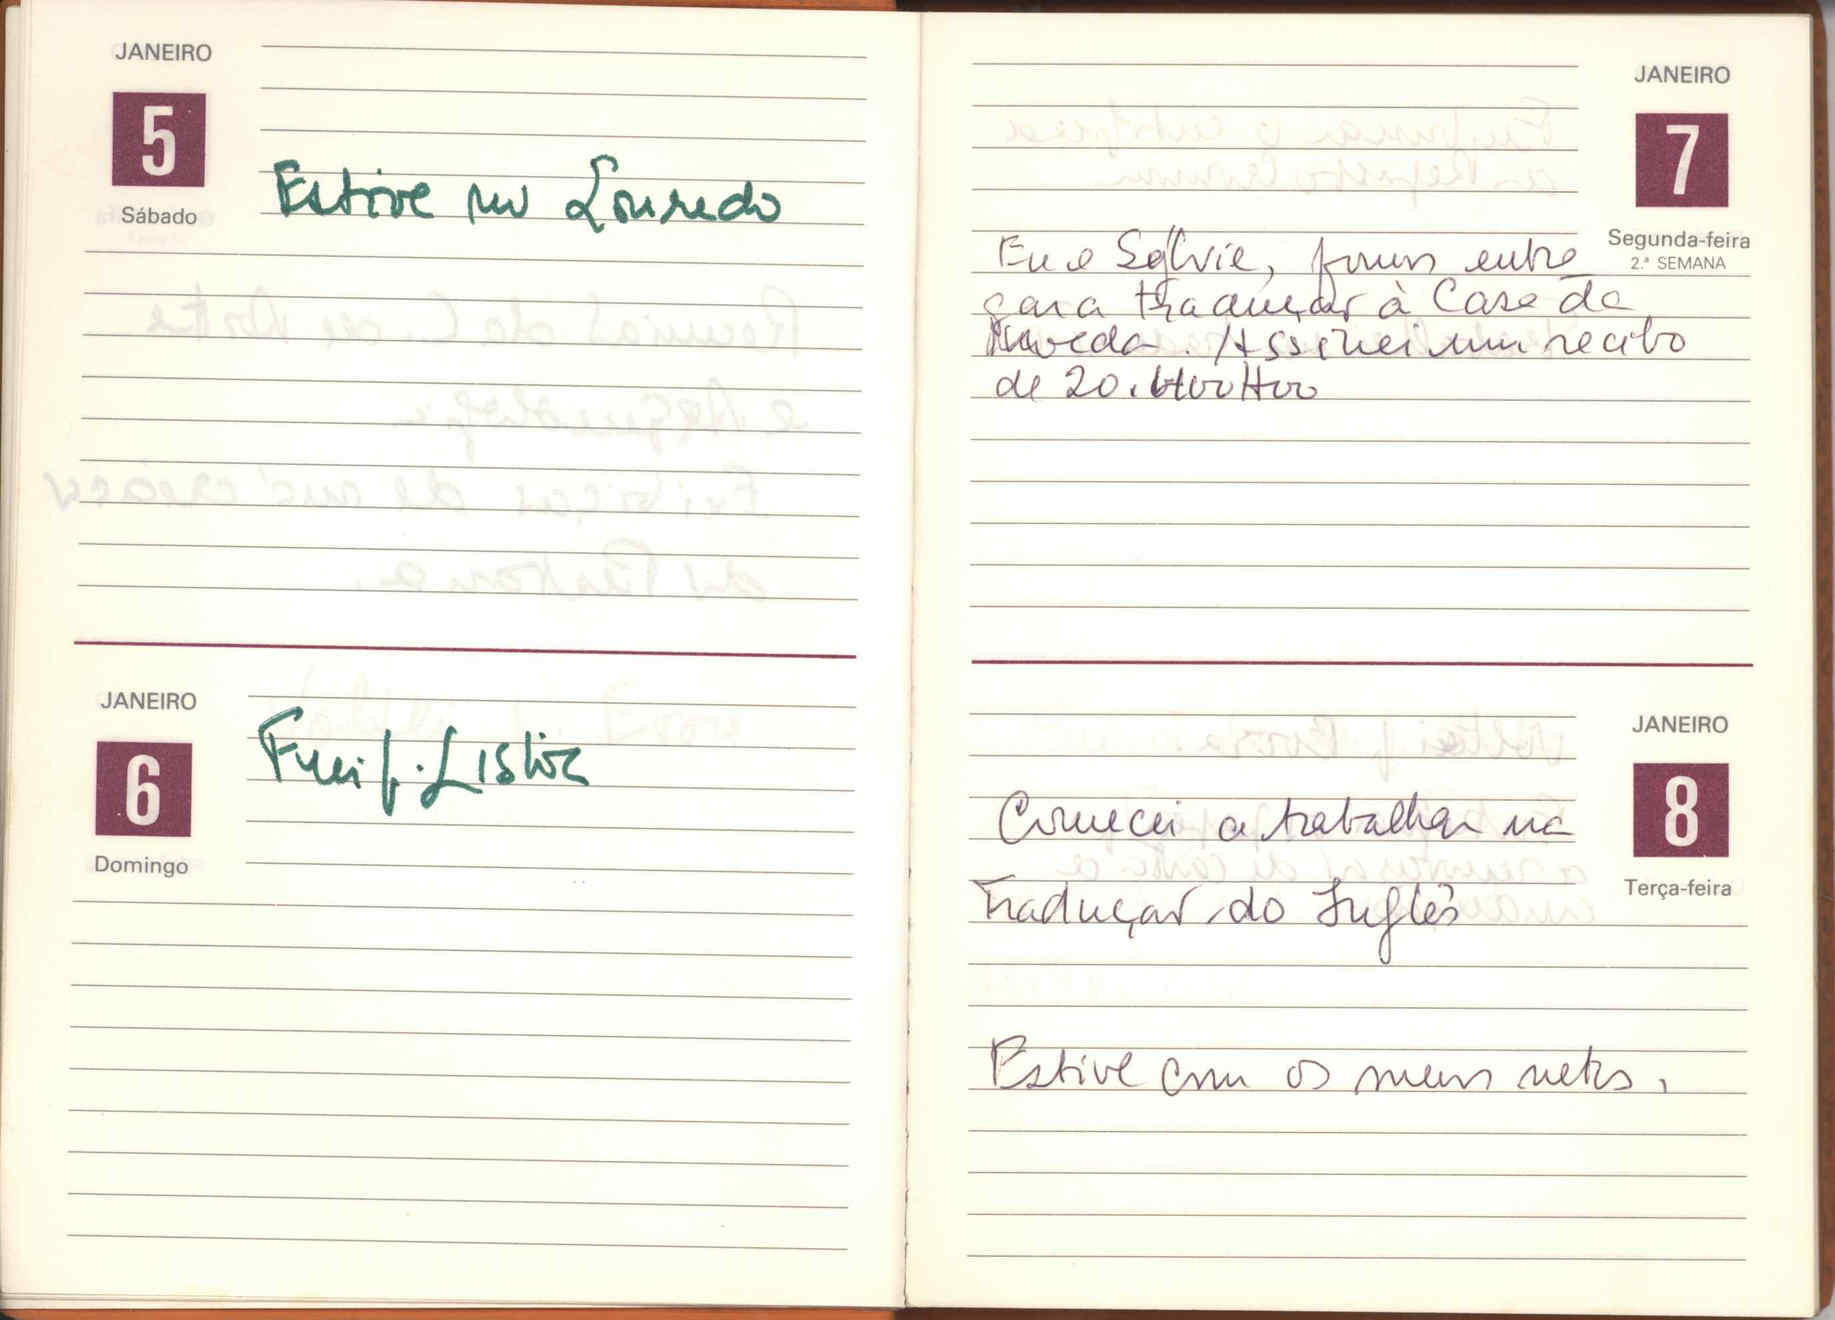 JANEIRO
5
Sábado
Estive no Louredo
JANEIRO
6
Domingo
Fui p. Lisboa
JANEIRO
7
Segunda-feira
2.ª SEMANA
Eu e Sylvie, fomos entre
gar a tradução à Casa da
Moeda. Assinei um recibo
de
JANEIRO
8
Terça-feira
Comecei a trabalhar na
Tradução do Inglês
Estive com os meus netos.